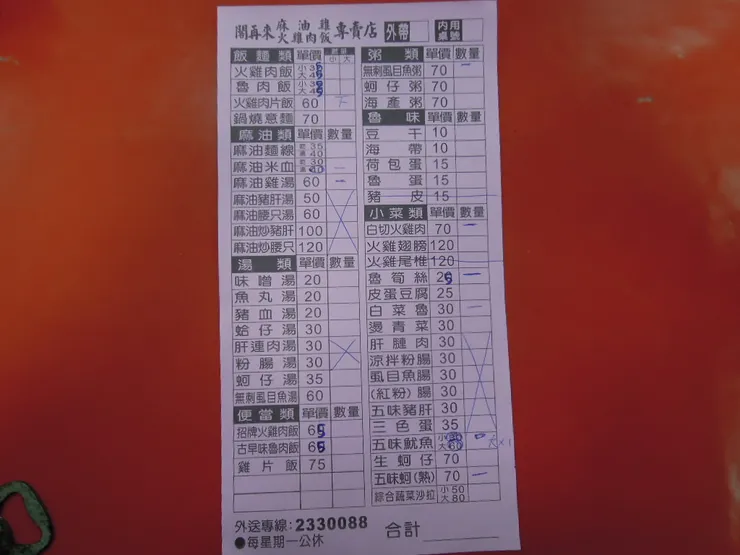 鬧再來 麻油雞 火雞肉飯 專賣店 外帶 內用桌號
飯麵類 單價 數量 小 大
火雞肉飯 小35 大45
魯肉飯 小35 大45
火雞肉片飯 60
鍋燒意麵 70
麻油類 單價 數量
麻油麵線 乾35 湯40
麻油米血 乾30 湯40
麻油雞湯 60
麻油豬肝湯 50
麻油腰只湯 60
麻油炒豬肝 100
麻油炒腰只 120
湯類 單價 數量
味噌湯 20
魚丸湯 20
豬血湯 20
蛤仔湯 30
肝連肉湯 30
粉腸湯 30
蚵仔湯 35
無刺虱目魚湯 60
便當類 單價 數量
招牌火雞肉飯 65
古早味魯肉飯 65
雞片飯 75
粥類 單價 數量
無刺虱目魚粥 70
蚵仔粥 70
海產粥 70
魯味 單價 數量
豆干 10
海帶 10
荷包蛋 15
魯蛋 15
豬皮 15
小菜類 單價 數量
白切火雞肉 70
火雞翅膀 120
火雞尾椎 120
魯筍絲 25
皮蛋豆腐 25
白菜魯 30
燙青菜 30
肝腱肉 30
涼拌粉腸 30
虱目魚腸 30
(紅粉)腸 30
五味豬肝 30
三色蛋 35
五味魷魚 大60 大x1
生蚵仔 70
五味蚵(熟) 70
綜合蔬菜沙拉 小50 大80
外送專線:2330088
●每星期一公休
合計